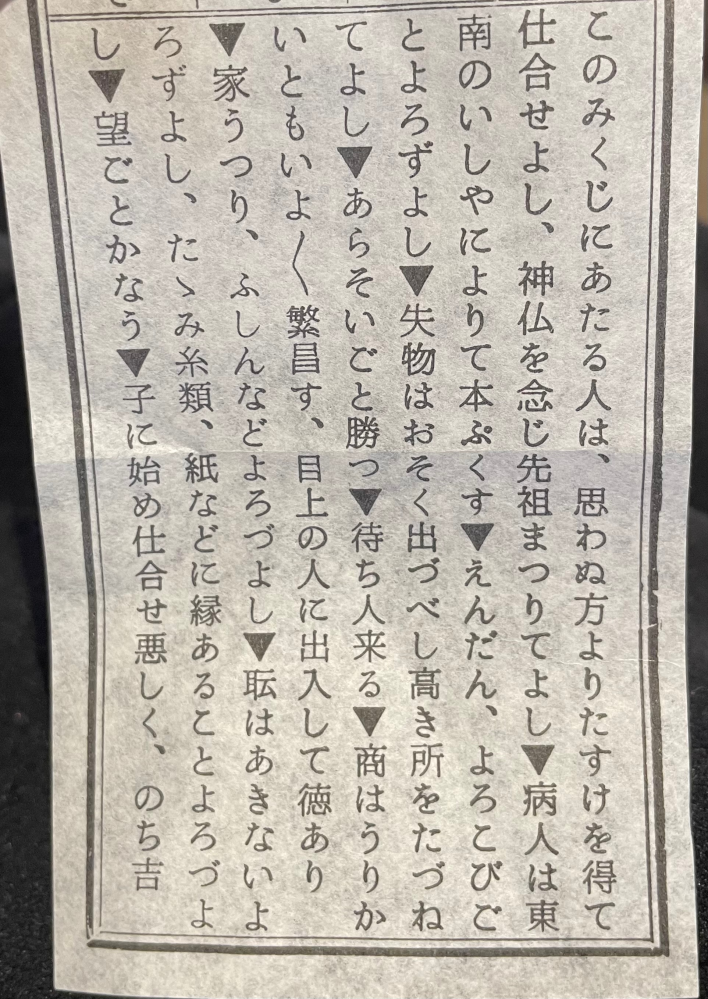 このみくじにあたる人は、思わぬ方よりたすけを得て
仕合せよし、神仏を念じ先祖まつりてよし▼病人は東
南のいしやによりて本ぷくす▼えんだん、よろこびご
とよろずよし▼失物はおそく出づべし高き所をたづね
てよし▼あらそいごと勝つ▼待ち人来る▼商はうりか
いともいよ〱繁昌す、目上の人に出入して徳あり
▼家うつり、ふしんなどよろづよし▼耺はあきないよ
ろずよし、たゝみ糸類、紙などに縁あることよろづよ
し▼望ごとかなう▼子に始め仕合せ悪しく、のち吉